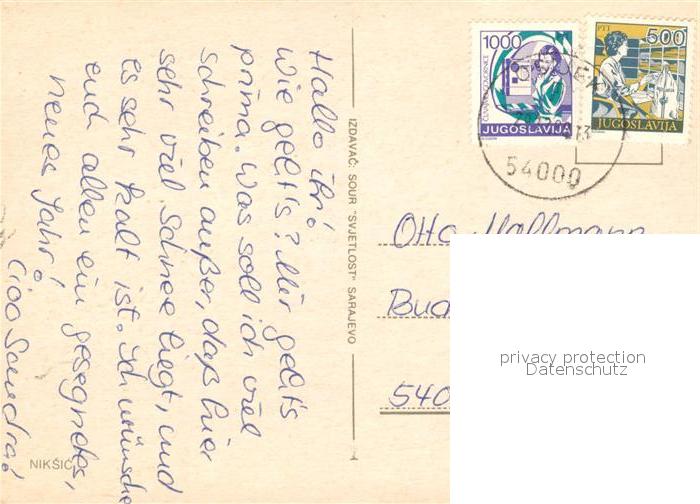 Hallo ihr!
Wie geht's? Mir geht's
prima. Was soll ich viel
schreiben außer, daß hier
sehr viel Schnee liegt, und
es sehr kalt ist. Ich wünsche
euch allen ein gesegnetes,
neues Jahr!
Ciao Sandra!
NIKŠIĆ
IZDAVAČ: SOUR "SVJETLOST" SARAJEVO
1000
JUGOSLAVIJA
PTT
500
JUGOSLAVIJA
54000
Otto Hallmann
Bud
540
privacy protection
Datenschutz